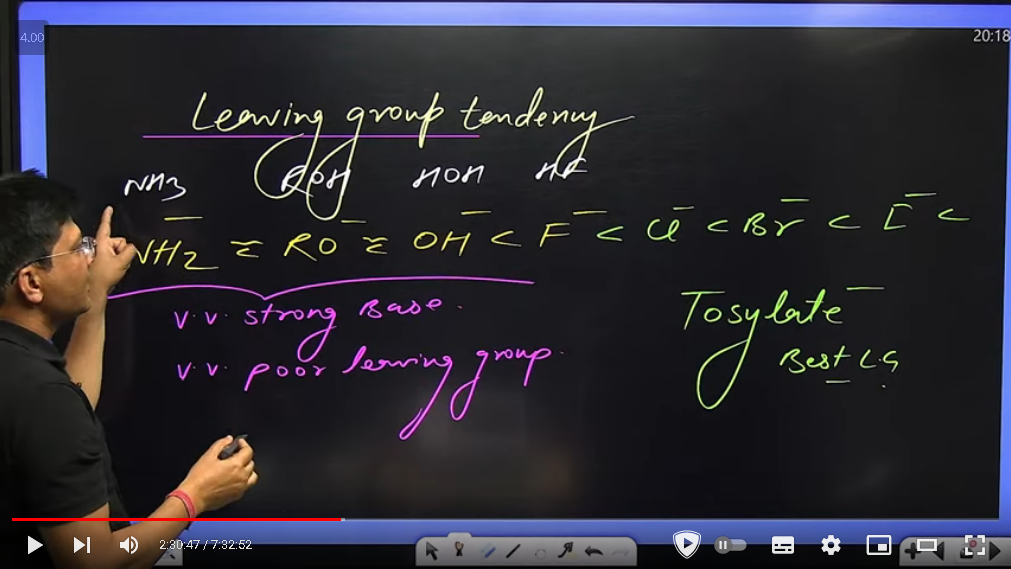 4.00
20:18
Leaving group tendency
NH3 ROH HOH HF
NH2⁻ ≈ RO⁻ ≈ OH⁻ < F⁻ < Cl⁻ < Br⁻ < I⁻ <
v.v. strong Base.
v.v. poor leaving group.
Tosylate⁻
Best L.G
2:30:47 / 7:32:52